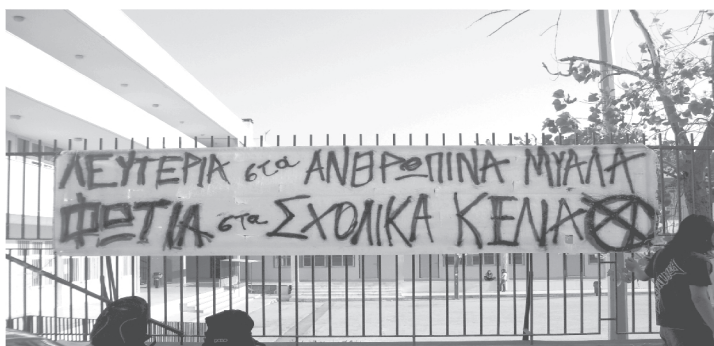 ΛΕΥΤΕΡΙΑ στα ΑΝΘΡΩΠΙΝΑ ΜΥΑΛΑ
ΦΩΤΙΑ στα ΣΧΟΛΙΚΑ ΚΕΝΑ Ⓐ